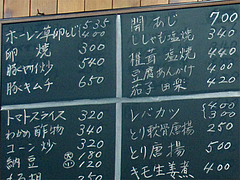 ホーレン草卵とじ 535 400
卵焼 300
豚バラ炒 540
豚キムチ 650
トマトスライス 320
わかめ酢物 340
コーン炒 320
納豆 180 120
開あじ 700
ししゃも塩焼 340
椎茸塩焼 440
豆腐あんかけ 420
茄子田楽 420
レバカツ 400 300
とり軟骨唐揚 250
とり唐揚 500
キモ生姜煮 400